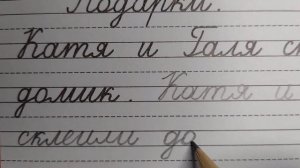 Подарки.
Катя и Галя с
домик. Катя и
склеили до